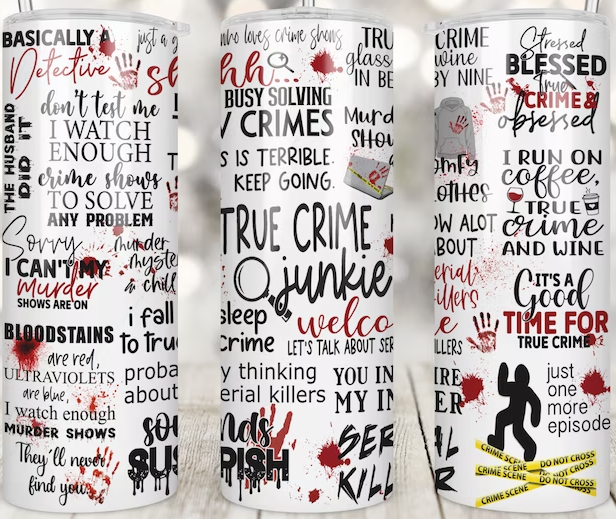 BASICALLY A
Detective
THE HUSBAND
DID IT
don't test me
I WATCH
ENOUGH
crime shows
TO SOLVE
ANY PROBLEM
Sorry
I CAN'T MY
murder
SHOWS ARE ON
BLOODSTAINS
are red,
ULTRAVIOLETS
are blue,
I watch enough
MURDER SHOWS
They'll never
find you.
just a g
sh
murder
myste
& chill
i fall
to tru
proba
about
SUS
who loves crime shows
hh...
BUSY SOLVING
CRIMES
S IS TERRIBLE.
KEEP GOING.
TRU
glass
IN BE
Murd
Show
TRUE CRIME
junkie
sleep
crime
welco
LET'S TALK ABOUT SER
y thinking
erial killers
YOU IN
MY IN
nds
PISH
SER
KILL
CRIME
wine
BY NINE
omfy
OTHES
OW ALOT
BOUT
erial
illers
e
ILLERS
IRE
ER
AL
R
Stressed
BLESSED
True
CRIME &
obsessed
I RUN ON
coffee,
TRUE
crime
AND WINE
IT'S A
Good
TIME FOR
TRUE CRIME
just
one
more
episode
CRIME SCENE DO NOT CROSS
CRIME SCENE DO NOT CROSS
CRIME SCENE DO NOT CROSS